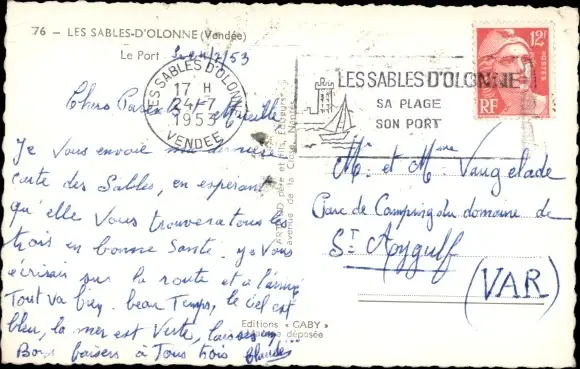 76 - LES SABLES-D'OLONNE (Vendée)
Le Port
24/7/53
LES SABLES D'OLONNE
17 H
24-7
1953
VENDEE
LES SABLES D'OLONNE
SA PLAGE
SON PORT
12F
POSTES
RF
Chers Parents et Mireille
Je Vous envoie ma dernière
carte des Sables, en esperant
qu'elle Vous trouvera tous les
trois en bonne Santé. Je Vous
écrirais sur la route et à l'arrivée
Tout va bien. beau Temps, le ciel est
bleu, la mer est Verte,
Bons baisers à Tous trois
Mr et Mme Vaugelade
Parc de Camping du domaine de
St Aygulf
(VAR)
Editions « GABY »
déposée
ARTAUD père et fils, Editeurs
avenue de la Close, Nantes